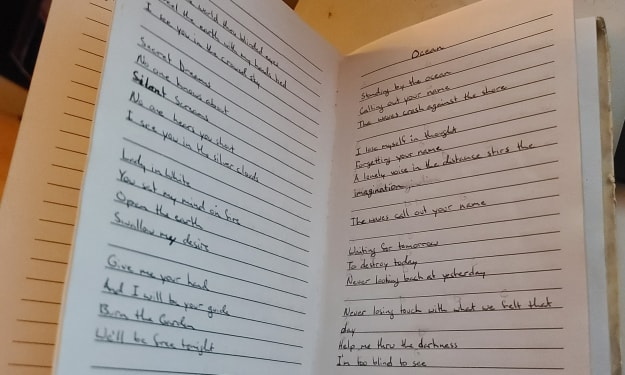 the world thru blinded eyes
feel the earth with my hands tied
I see you in the crowded sky
Secret Dreams
No one knows about
Silent Screams
No one hears you shout
I see you in the silver clouds
Lady in White
You set my mind on fire
Open the earth
Swallow my desire
Give me your hand
And I will be your guide
Burn the Garden
We'll be free tonight
Ocean
Standing by the ocean
Calling out your name
The waves crash against the shore
I lose myself in thought
Forgetting your name
A lonely voice in the distance stirs the
imagination
The waves call out your name
Waiting for tomorrow
To destroy today
Never looking back at yesterday
Never losing touch with what we felt that
day
Help me thru the darkness
I'm too blind to see